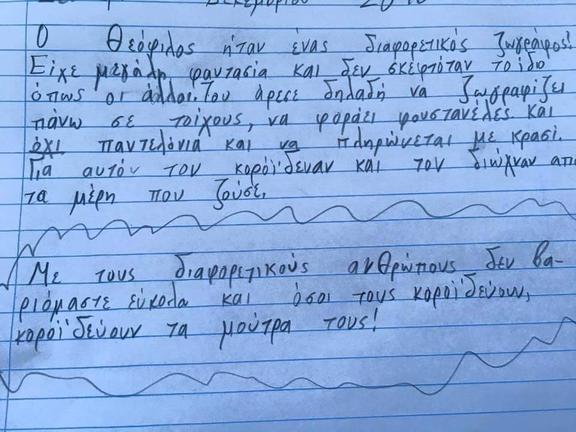 Δεκεμβρίου
Ο Θεόφιλος ήταν ένας διαφορετικός ζωγράφος!
Είχε μεγάλη φαντασία και δεν σκεφτόταν το ίδιο
όπως οι άλλοι. Του άρεσε δηλαδή να ζωγραφίζει
πάνω σε τοίχους, να φοράει φουστανέλες και
όχι παντελόνια και να πληρώνεται με κρασί.
Για αυτόν τον κορόϊδευαν και τον διώχναν από
τα μέρη που ζούσε.
Με τους διαφορετικούς ανθρώπους δεν βα-
ριόμαστε εύκολα και όσοι τους κοροϊδεύουν,
κοροϊδεύουν τα μούτρα τους!